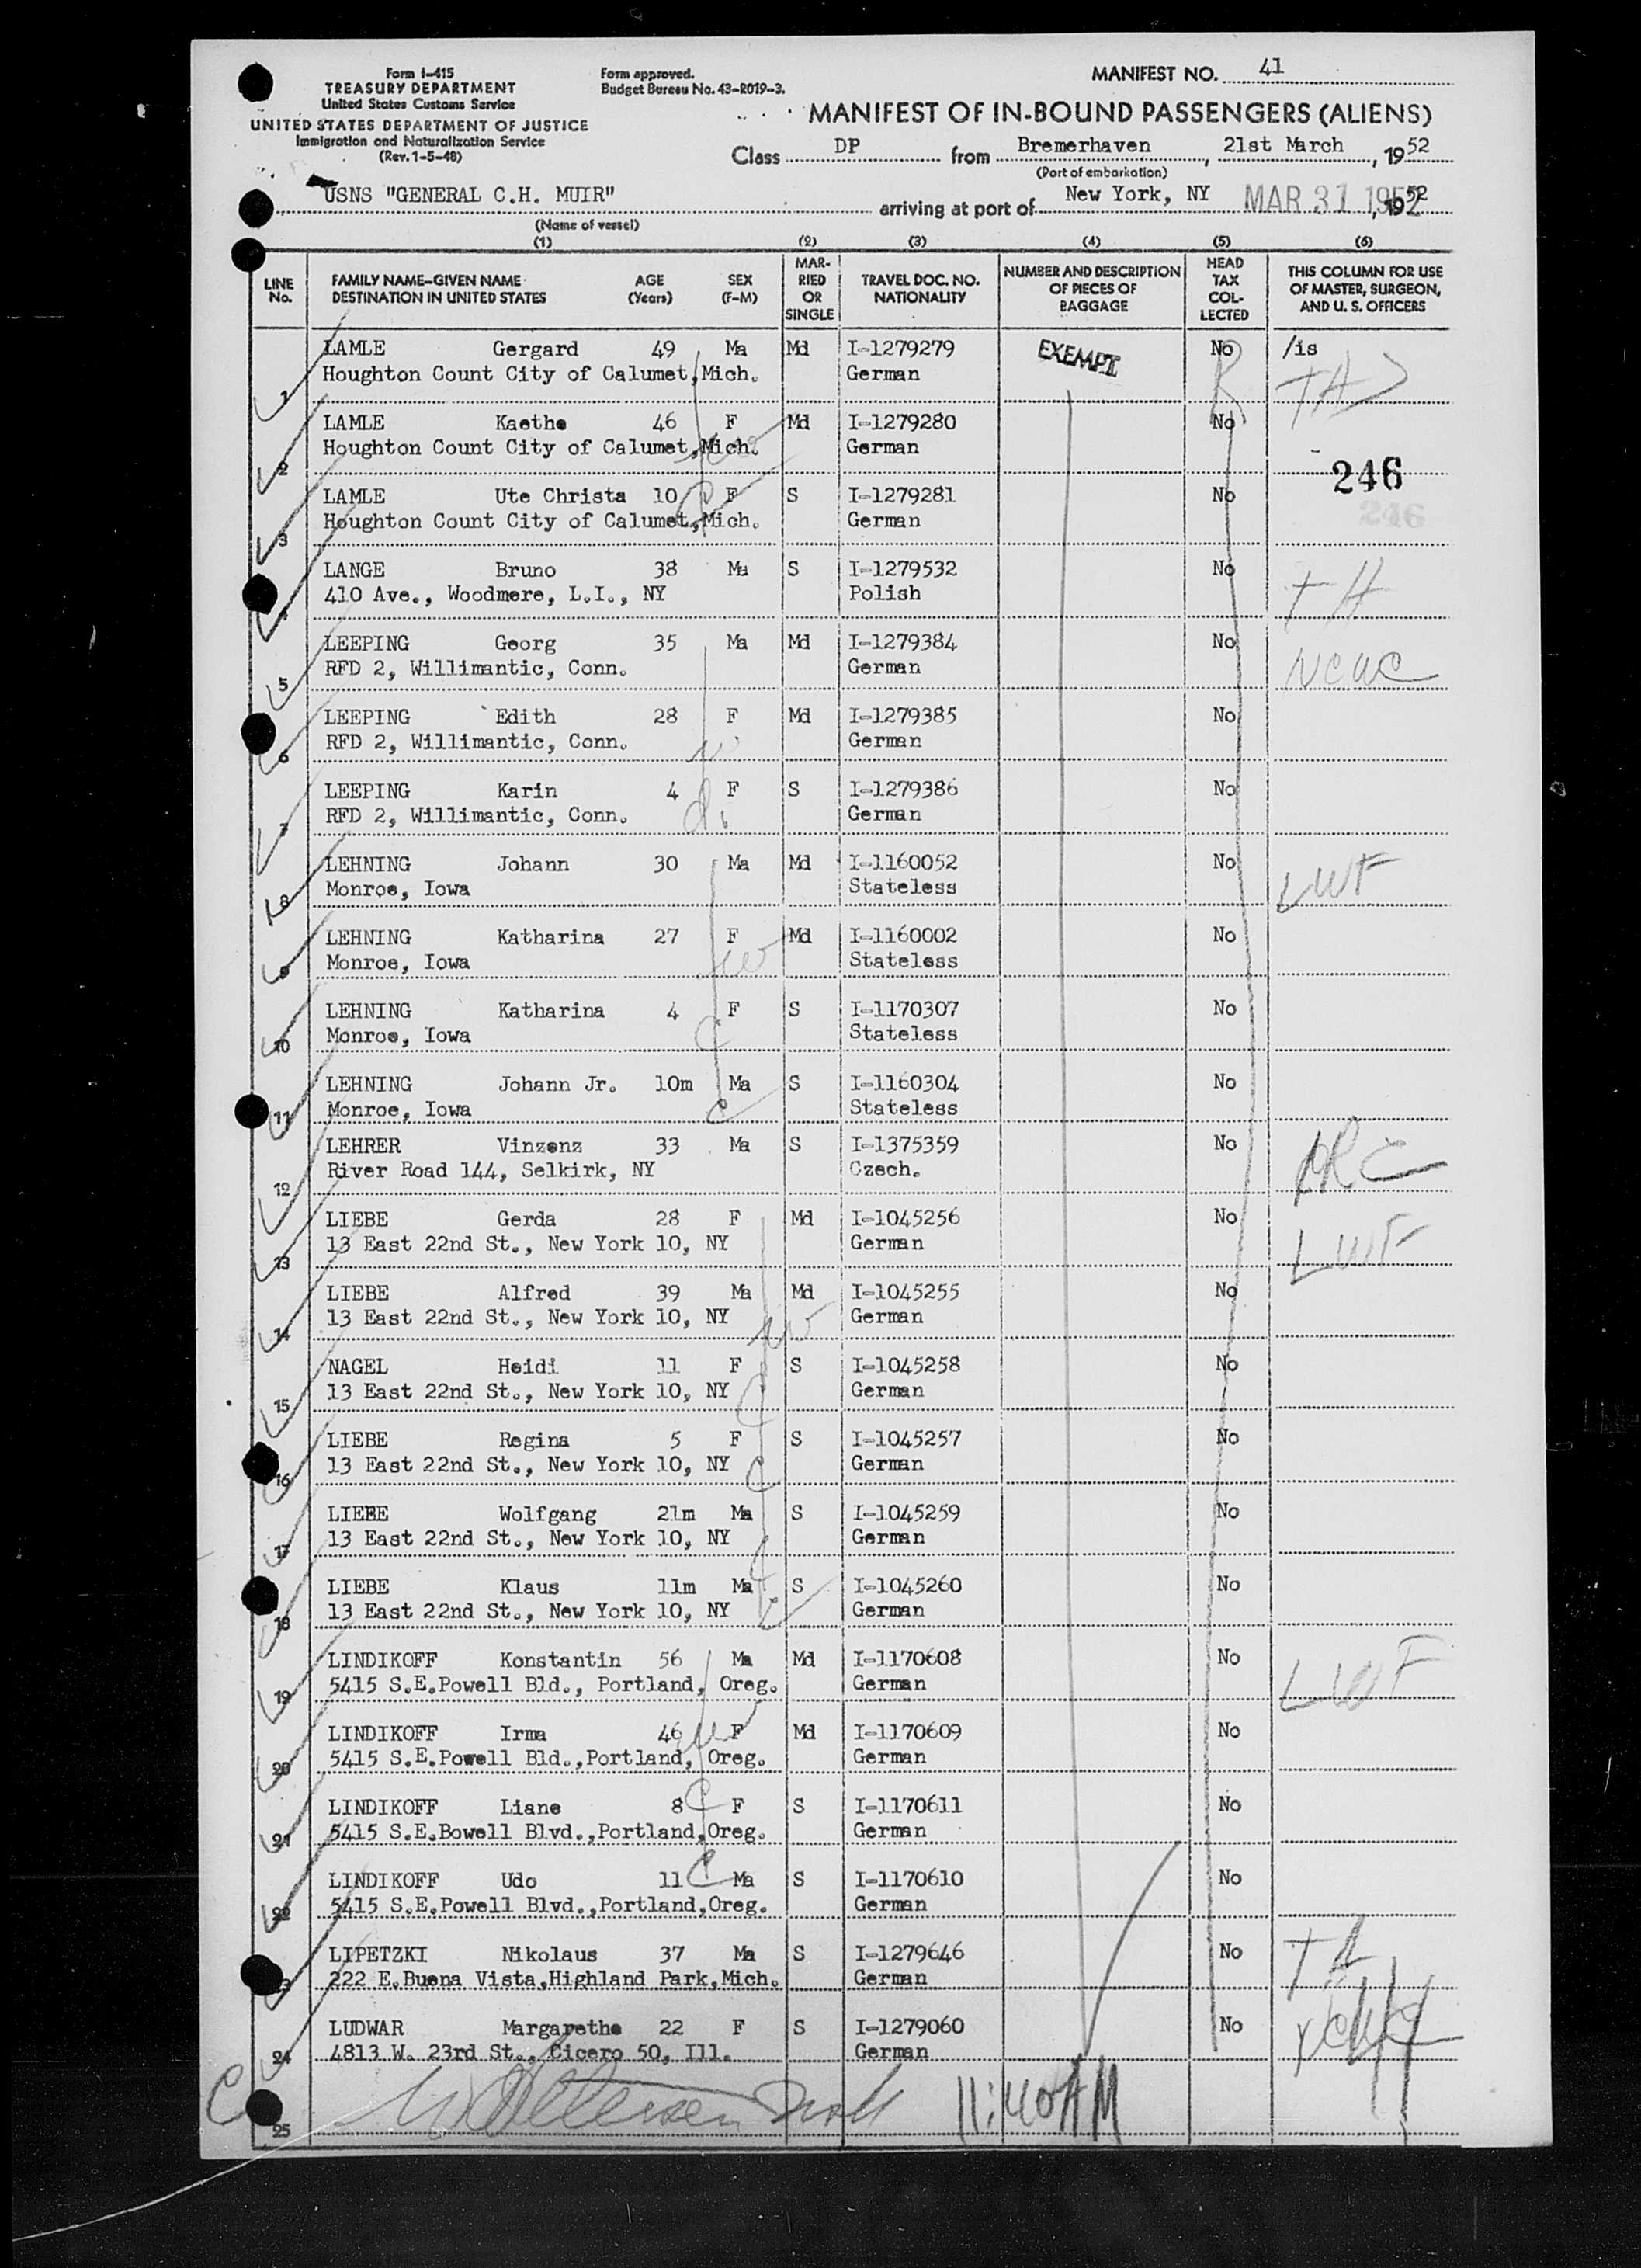 Form I-415
TREASURY DEPARTMENT
United States Customs Service
UNITED STATES DEPARTMENT OF JUSTICE
Immigration and Naturalization Service
(Rev. 1-5-48)
Form approved.
Budget Bureau No. 43-R019-3.
MANIFEST NO. 41
MANIFEST OF IN-BOUND PASSENGERS (ALIENS)
Class DP from Bremerhaven, 21st March, 1952
(Port of embarkation)
USNS "GENERAL C.H. MUIR" arriving at port of New York, NY MAR 31 1952, 1952
(Name of vessel)
(1) (2) (3) (4) (5) (6)
LINE No. FAMILY NAME-GIVEN NAME DESTINATION IN UNITED STATES AGE (Years) SEX (F-M) MARRIED OR SINGLE TRAVEL DOC. NO. NATIONALITY NUMBER AND DESCRIPTION OF PIECES OF BAGGAGE HEAD TAX COLLECTED THIS COLUMN FOR USE OF MASTER, SURGEON, AND U. S. OFFICERS
LAMLE Gergard 49 Ma Md I-1279279 EXEMPT No /is
1 Houghton Count City of Calumet, Mich. German
LAMLE Kaethe 46 F Md I-1279280 No
2 Houghton Count City of Calumet, Mich. German
246
LAMLE Ute Christa 10 F S I-1279281 No
3 Houghton Count City of Calumet, Mich. German
246
LANGE Bruno 38 Ma S I-1279532 No TH
410 Ave., Woodmere, L.I., NY Polish
LEEPING Georg 35 Ma Md I-1279384 No NCWC
5 RFD 2, Willimantic, Conn. German
LEEPING Edith 28 F Md I-1279385 No
6 RFD 2, Willimantic, Conn. German
LEEPING Karin 4 F S I-1279386 No
7 RFD 2, Willimantic, Conn. German
LEHNING Johann 30 Ma Md I-1160052 No LWF
8 Monroe, Iowa Stateless
LEHNING Katharina 27 F Md I-1160002 No
9 Monroe, Iowa Stateless
LEHNING Katharina 4 F S I-1170307 No
10 Monroe, Iowa Stateless
LEHNING Johann Jr. 10m Ma S I-1160304 No
11 Monroe, Iowa Stateless
LEHRER Vinzenz 33 Ma S I-1375359 No
12 River Road 144, Selkirk, NY Czech.
LIEBE Gerda 28 F Md I-1045256 No LWF
13 13 East 22nd St., New York 10, NY German
LIEBE Alfred 39 Ma Md I-1045255 No
14 13 East 22nd St., New York 10, NY German
NAGEL Heidi 11 F S I-1045258 No
15 13 East 22nd St., New York 10, NY German
LIEBE Regina 5 F S I-1045257 No
16 13 East 22nd St., New York 10, NY German
LIEBE Wolfgang 21m Ma S I-1045259 No
17 13 East 22nd St., New York 10, NY German
LIEBE Klaus 11m Ma S I-1045260 No
18 13 East 22nd St., New York 10, NY German
LINDIKOFF Konstantin 56 Ma Md I-1170608 No LWF
19 5415 S.E.Powell Bld., Portland, Oreg. German
LINDIKOFF Irma 46 F Md I-1170609 No
20 5415 S.E.Powell Bld.,Portland, Oreg. German
LINDIKOFF Liane 8 F S I-1170611 No
21 5415 S.E.Bowell Blvd.,Portland,Oreg. German
LINDIKOFF Udo 11 Ma S I-1170610 No
22 5415 S.E.Powell Blvd.,Portland,Oreg. German
LIPETZKI Nikolaus 37 Ma S I-1279646 No
222 E.Buena Vista,Highland Park,Mich. German
LUDWAR Margarethe 22 F S I-1279060 No
24 4813 W. 23rd St., Cicero 50, Ill. German
25 11:40 AM